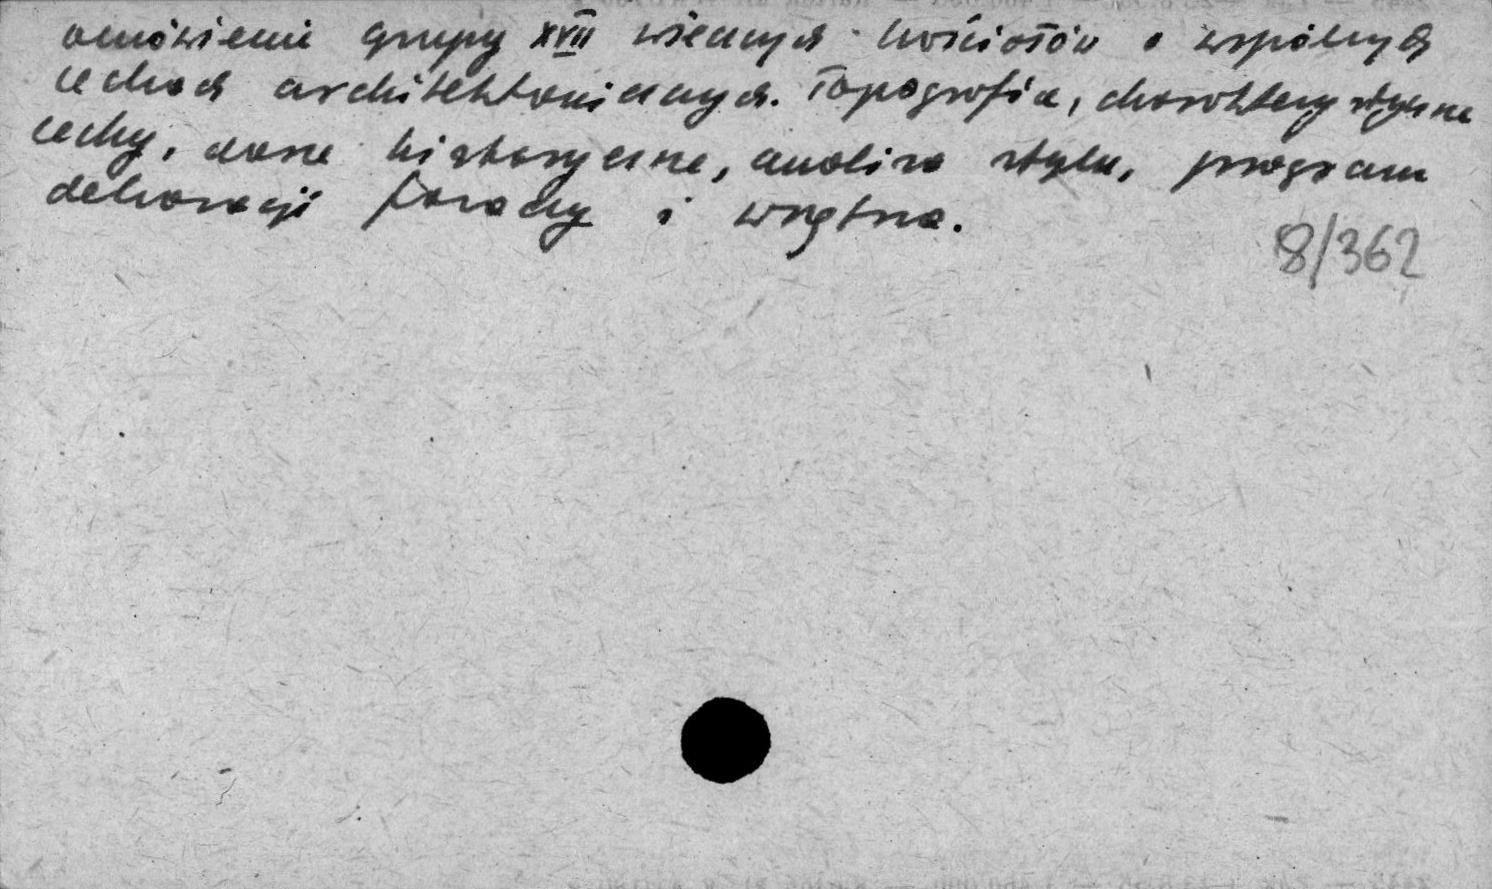 omówienie grupy XVII wiecznych kościołów o wspólnych
cechach architektonicznych. Topografia, charakterystyczne
cechy, dane historyczne, analiza stylu, program
dekoracji fasady i wnętrza.
8/362